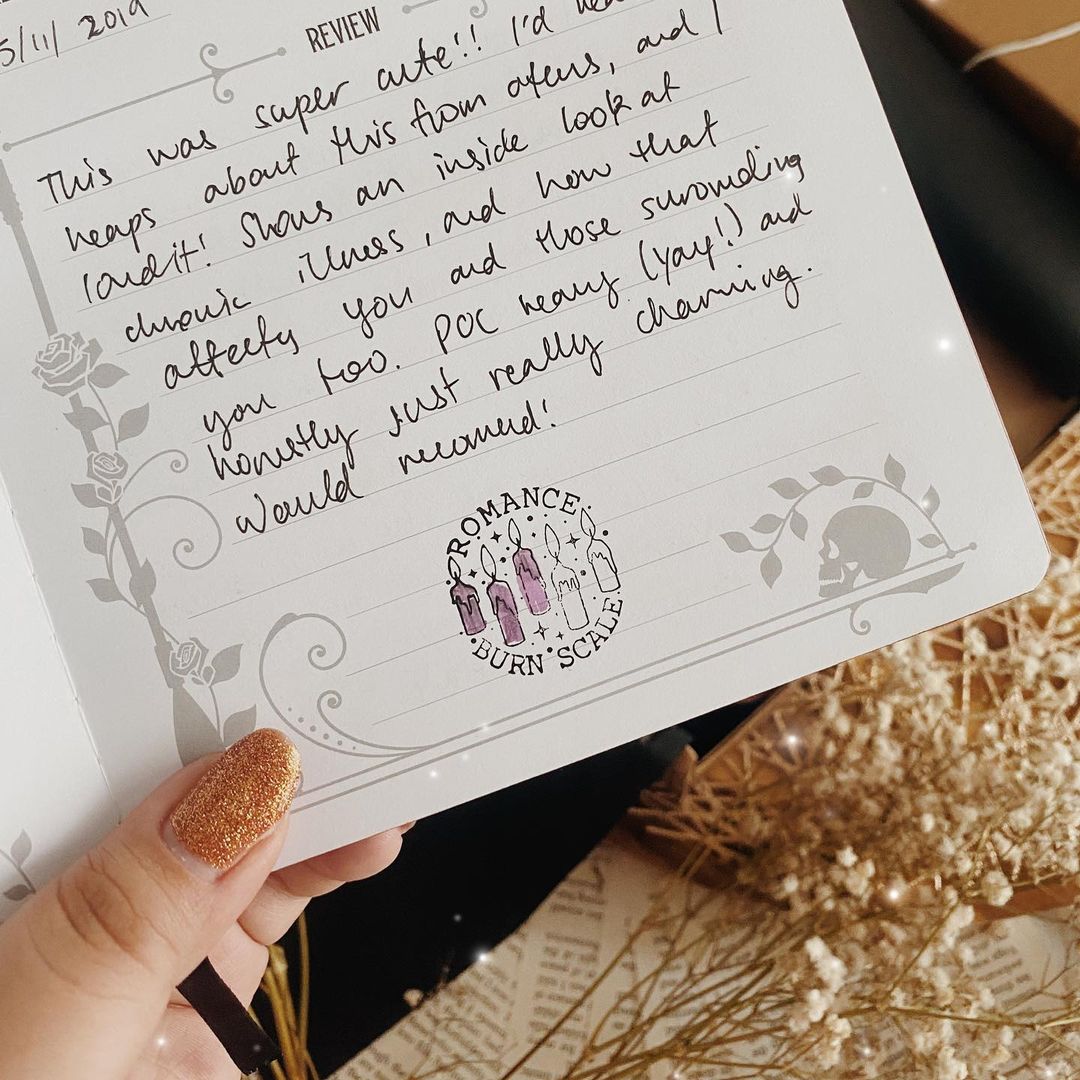 5/11/ 2019
REVIEW
This was super cute!! I'd
heaps about this from others, and I
loved it! Shows an inside look at
chronic illness, and how that
affects you and those surounding
you too. POC heavy (yay!) and
honestly just really charming.
Would recomend!
ROMANCE
BURN SCALE